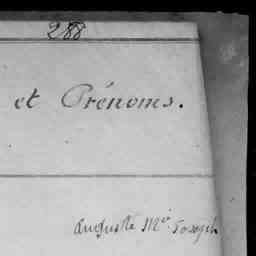 288
et Prénoms.
Auguste M.ie Joseph